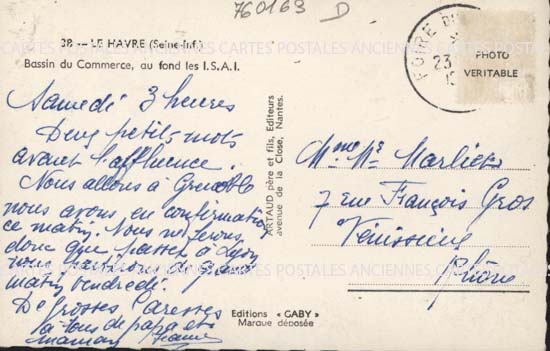 760163 D
38 — LE HAVRE (Seine-Inf.)
Bassin du Commerce, au fond les I.S.A.I.
CARTES POSTALES ANCIENNES CARTES POSTALES ANCIENNES
Samedi 3 heures
Deux petits mots
avant l'affluence.
Nous allons à Grenoble
nous avons eu confirmation
ce matin. Nous ne ferons
donc que passer à Lyon
nous partirons de grand
matin vendredi.
De grosses caresses
à tous de papa et
maman
ARTAUD père et fils, Editeurs
avenue de la Close, Nantes.
Editions « GABY »
Marque déposée
FOIRE
23
PHOTO
VERITABLE
Mme Mr
7 rue François Gros
Venissieux
Rhône